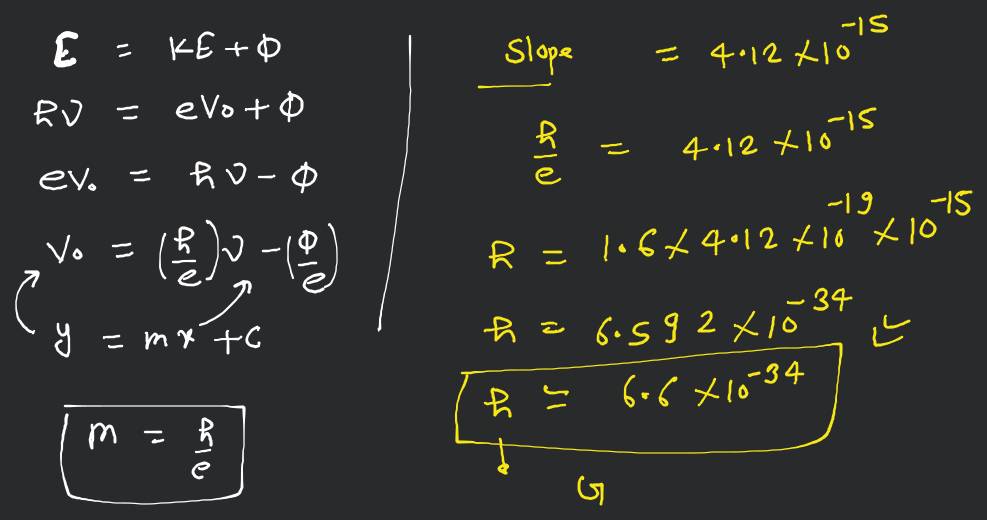 E = KE + ϕ
hν = eV₀ + ϕ
eV₀ = hν - ϕ
V₀ = (h/e)ν - (ϕ/e)
y = mx + c
m = h/e
Slope = 4.12 × 10⁻¹⁵
h/e = 4.12 × 10⁻¹⁵
h = 1.6 × 4.12 × 10⁻¹⁹ × 10⁻¹⁵
h = 6.592 × 10⁻³⁴
h ≃ 6.6 × 10⁻³⁴